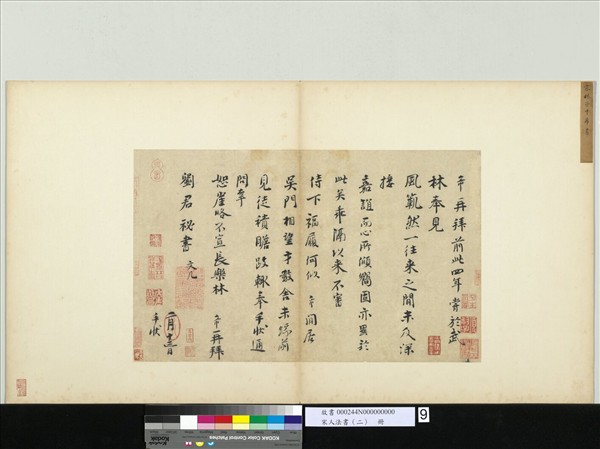 希再拜前此四年嘗於武
林奉見
風範然一往來之間未及深
接
嘉誼而心所傾嚮固亦異於
此矣乖隔以来不審
侍下福履何似 希涓居
吳門相望才數舍未緣前
見徒積瞻跂輒奉手狀通
問幸
恕崖略不宣長樂林 希再拜
劉君秘書 文几
二月十三日
手狀
故書 000244N000000000
宋人法書（二） 冊
9
KODAK Color Control Patches
Kodak